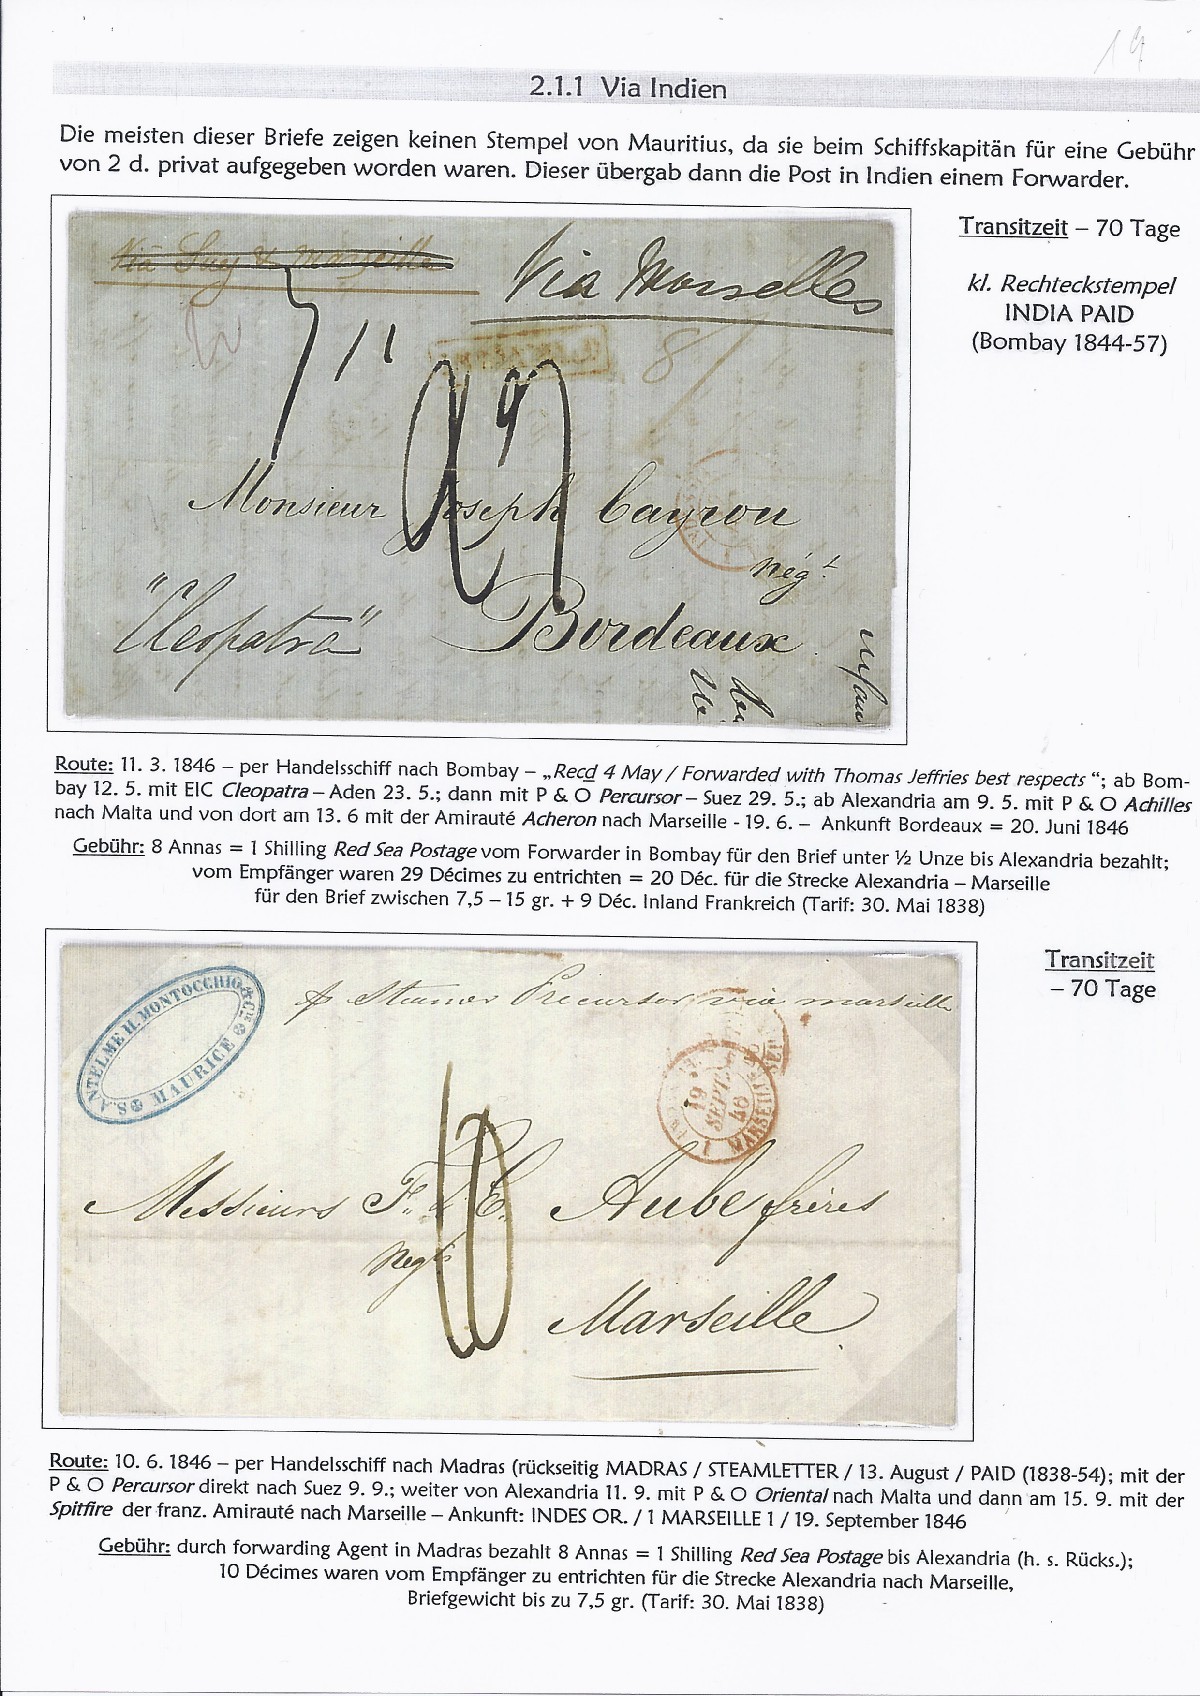 19
2.1.1 Via Indien
Die meisten dieser Briefe zeigen keinen Stempel von Mauritius, da sie beim Schiffskapitän für eine Gebühr
von 2 d. privat aufgegeben worden waren. Dieser übergab dann die Post in Indien einem Forwarder.
Transitzeit – 70 Tage
kl. Rechteckstempel
INDIA PAID
(Bombay 1844-57)
Via Suez & Marseille
Via Marselles
8
29
Monsieur Joseph Cayrou
Négt.
"Cleopatra"
Bordeaux
Route: 11. 3. 1846 – per Handelsschiff nach Bombay – „Recd 4 May / Forwarded with Thomas Jeffries best respects “; ab Bom-
bay 12. 5. mit EIC Cleopatra – Aden 23. 5.; dann mit P & O Percursor – Suez 29. 5.; ab Alexandria am 9. 5. mit P & O Achilles
nach Malta und von dort am 13. 6 mit der Amirauté Acheron nach Marseille - 19. 6. – Ankunft Bordeaux = 20. Juni 1846
Gebühr: 8 Annas = 1 Shilling Red Sea Postage vom Forwarder in Bombay für den Brief unter ½ Unze bis Alexandria bezahlt;
vom Empfänger waren 29 Décimes zu entrichten = 20 Déc. für die Strecke Alexandria – Marseille
für den Brief zwischen 7,5 – 15 gr. + 9 Déc. Inland Frankreich (Tarif: 30. Mai 1838)
Transitzeit
– 70 Tage
S. ANTELME H. MONTOCCHIO & CIE
MAURICE
p Steamer Precursor via marseille
19
SEPT.
46
1 MARSEILLE 1
10
Messieurs F. & C. Aube frères
Negts
Marseille
Route: 10. 6. 1846 – per Handelsschiff nach Madras (rückseitig MADRAS / STEAMLETTER / 13. August / PAID (1838-54); mit der
P & O Percursor direkt nach Suez 9. 9.; weiter von Alexandria 11. 9. mit P & O Oriental nach Malta und dann am 15. 9. mit der
Spitfire der franz. Amirauté nach Marseille – Ankunft: INDES OR. / 1 MARSEILLE 1 / 19. September 1846
Gebühr: durch forwarding Agent in Madras bezahlt 8 Annas = 1 Shilling Red Sea Postage bis Alexandria (h. s. Rücks.);
10 Décimes waren vom Empfänger zu entrichten für die Strecke Alexandria nach Marseille,
Briefgewicht bis zu 7,5 gr. (Tarif: 30. Mai 1838)